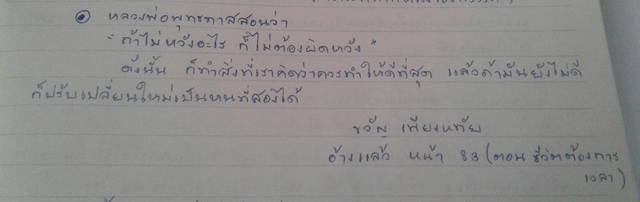 หลวงพ่อพุทธทาสสอนว่า
"ถ้าไม่หวังอะไร ก็ไม่ต้องผิดหวัง"
ดังนั้น ก็ทำสิ่งที่เราคิดว่าควรทำให้ดีที่สุด แล้วถ้ามันยังไม่ดี
ก็ปรับเปลี่ยนใหม่เป็นหนที่สองได้
ขวัญ เพียงหทัย
อ้างแล้ว หน้า 83 (ตอน ชีวิตต้องการ
เวลา)